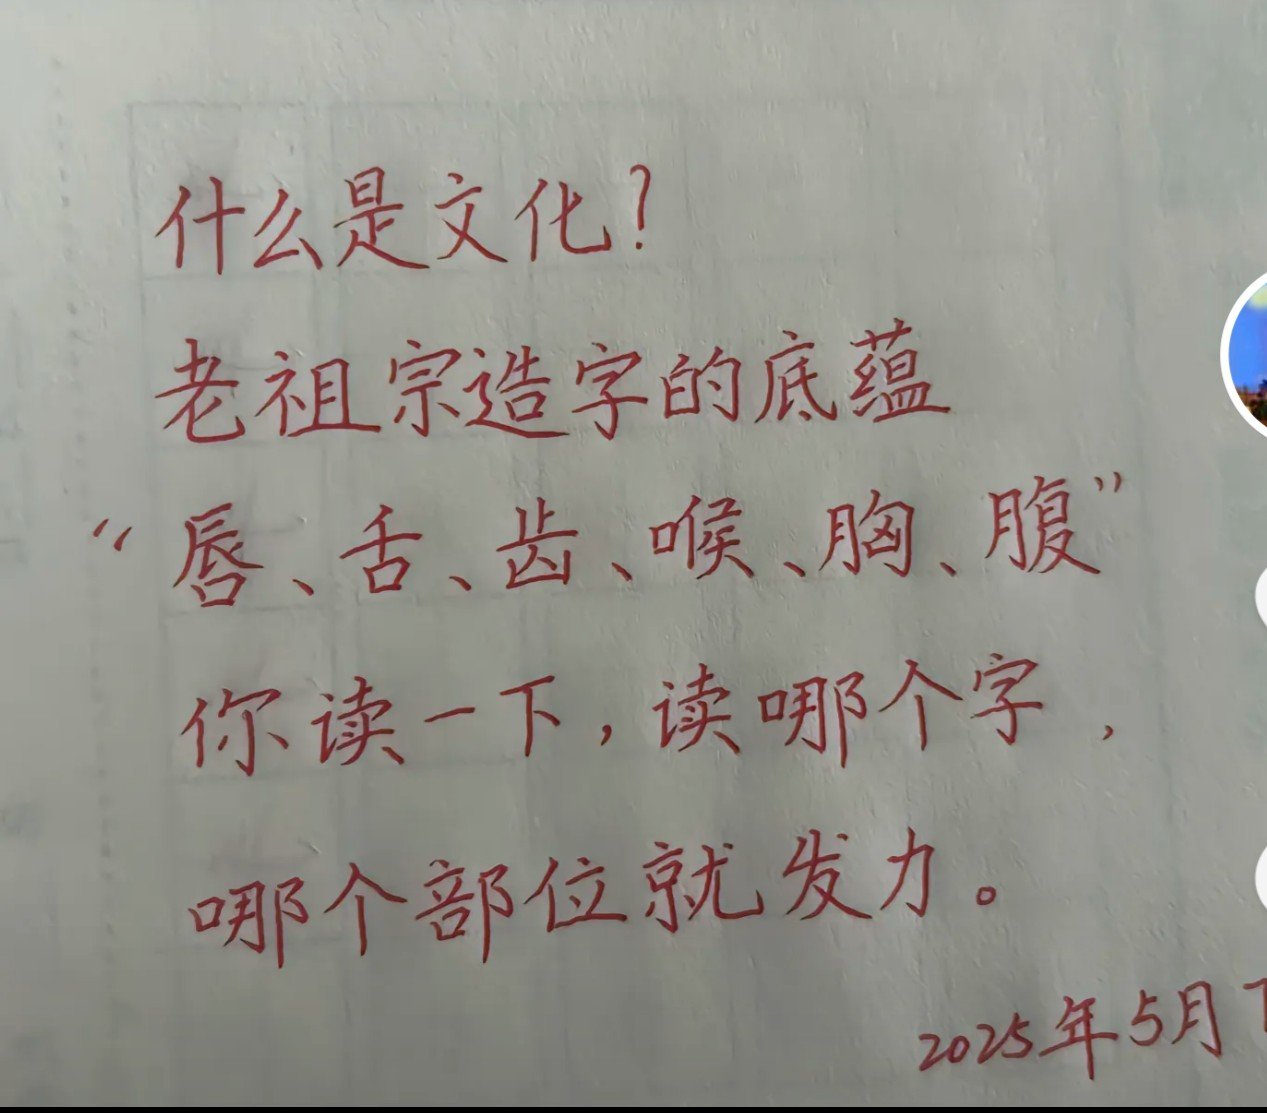 什么是文化?
老祖宗造字的底蕴
“唇、舌、齿、喉、胸、腹”
你读一下,读哪个字,
哪个部位就发力。
2025年5月